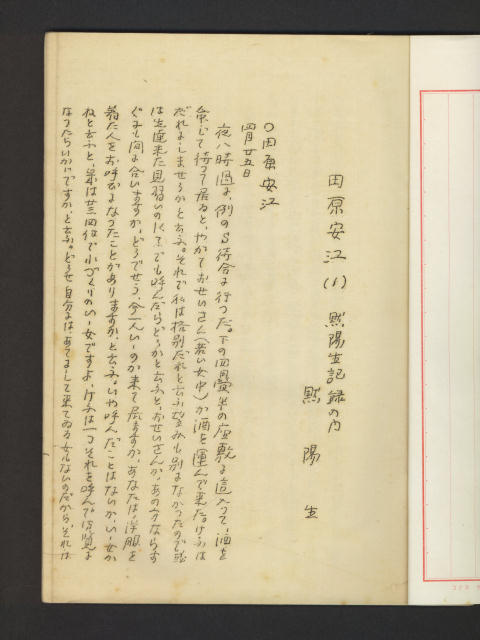 田原安江(1) 黙陽生記録の内
黙陽生
○田原安江
四月廿五日
夜八時過ぎ、例のS待合に行つた。下の四畳半の座敷に這入つて、酒を
命じて待つて居ると、やがておせいさん(若い女中)が酒を運んで来た。けふは
だれにしませうかと云ふ。それで私は格別だれと云ふ望みも別になかつたので
は先達来た見習いの でも呼んだらどうかと云ふと、おせいさんが、あの方ならす
ぐにも間に合いますが、どうでせう、今一人いゝのが来て居ますが、あなたは、洋服を
着た人をお呼びになつたことがありますか、と云ふ。いや呼んだことはないが、いゝ女か
ねと云ふと、年は廿三四位で小づくりのいゝ女ですよ、けふは一つそれを呼んで御覧に
なつたらいかゞですか、と云ふ。どうせ自分はあてにして来てゐる女もないのだから、それは